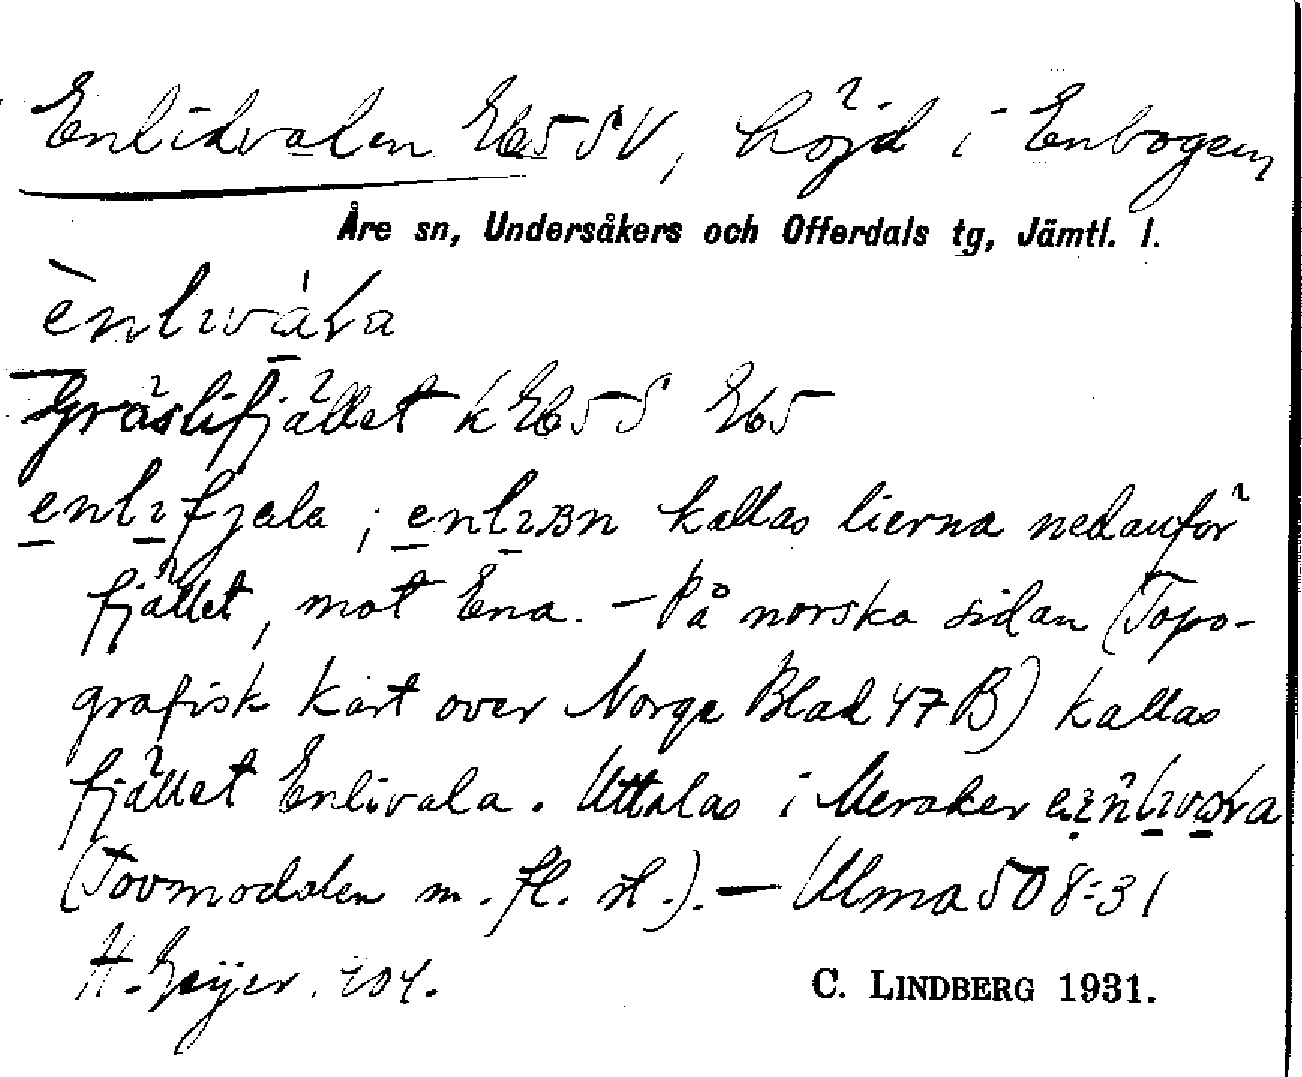 Enlidvalen Eb5SV, höjd i Enbogen,
Åre sn, Undersåkers och Offerdals tg, Jämtl. l.
ènlıwáɫa
Gräslifjället k Eb5S Eb5
enlıfjela ; enlıɞn kallas lierna nedanför
fjället, mot Ena. – På norska sidan (Topo-
grafisk kart over Norge Blad 47 B) kallas
fjället Enlivala. Uttalas i Meraker
(Tovmodalen m. fl. st.). — Ulma 508:31
H. Geijer. 104.
C. LINDBERG 1931.